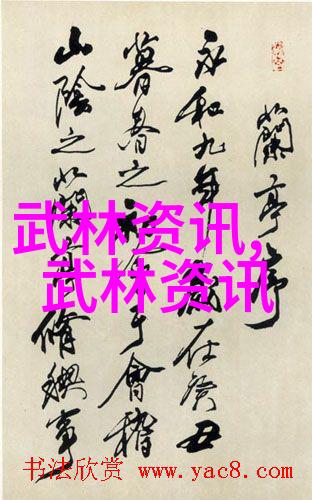 蘭亭序
永和九年歲在癸丑
暮春之初會于會稽
山陰之蘭亭脩禊事
武林资讯,
武林资讯
书法欣赏 www.yac8.com